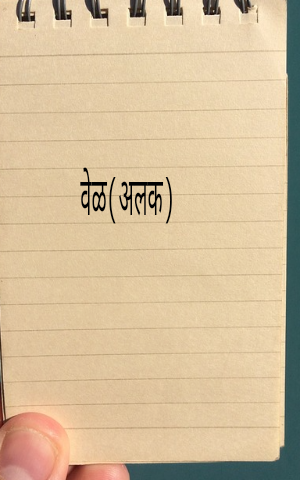 वेळ(अलक)